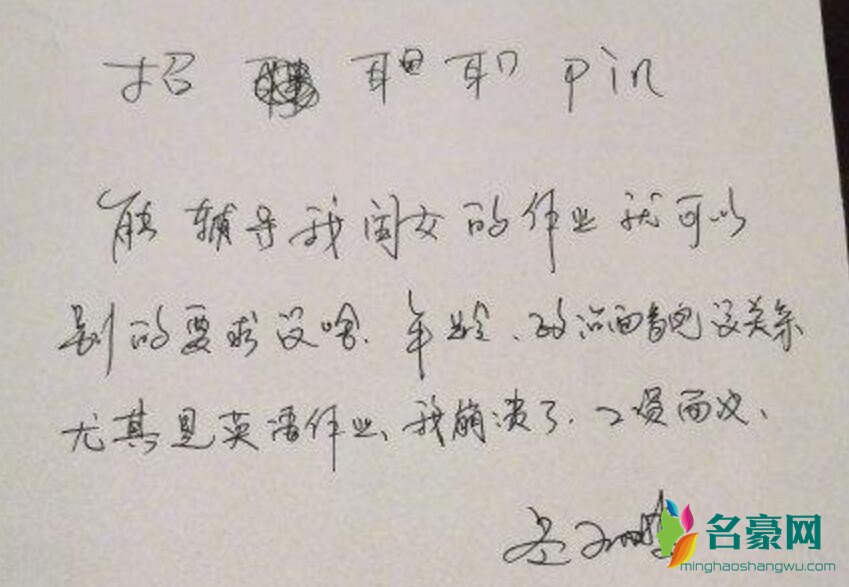 招 职 职 pin
能辅导我闺女的作业就可以
别的要求没啥、年龄、政治面貌没关系
尤其是英语作业、我崩溃了、工资面议、
名豪网
minghaoshangwu.com